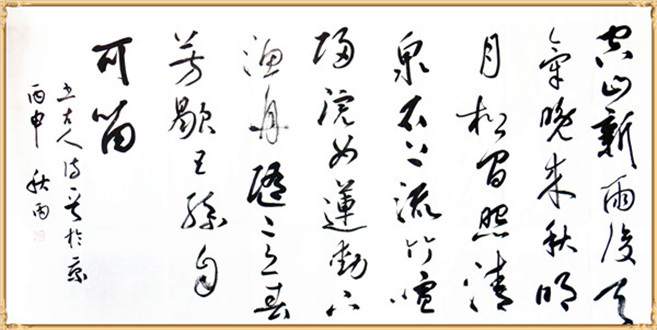 空山新雨後天
氣晚來秋明
月松間照清
泉石上流竹喧
歸浣女蓮動下
漁舟隨意春
芳歇王孫自
可留
書古人詩一首於京
丙申 秋雨